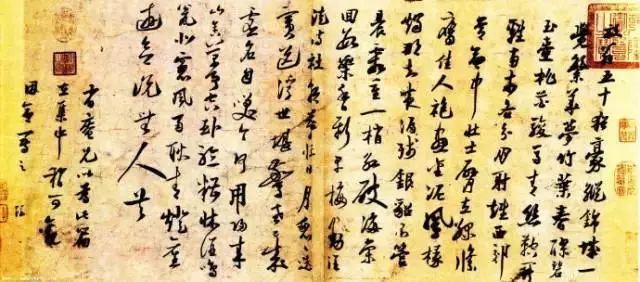 放翁五十猶豪縱錦城一
覺繁華夢竹葉春醪碧
玉壺桃花駿馬青絲鞚鬭
雞南市各分朋射雉西郊
常命中壯士臂立綠絛
鷹佳人袍畫金泥鳳椽
燭那知夜漏殘銀貂不管
晨霜重一梢紅破海棠
回數蕊香新早梅動酒
徒詩社朝暮忙日月匆匆迭
賓送浮世堪驚老已成
虛名自笑今何用歸來
山舍萬事空臥聽糟牀酒鳴
甕北窗風雨耿青燈舊
遊欲說無人共
省庵兄以為此篇
在集中稍可觀
因命寫之 游